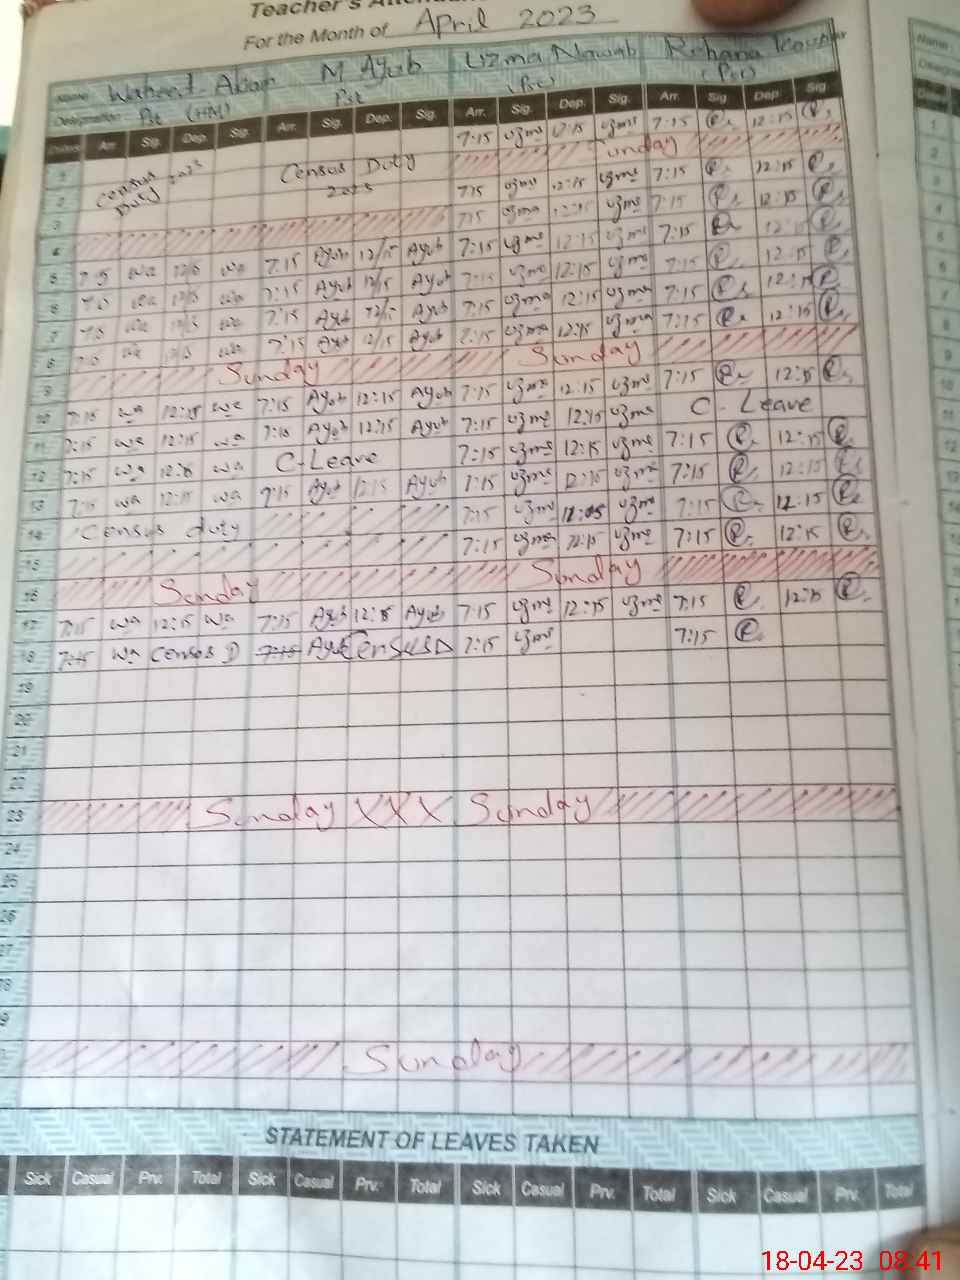 Teacher's
For the Month of April 2023
Name: Waheed M Ayub Uzma Nawab Rehana
Designation: Pst (HM) Pst (Pst) (Pst)
Arr. Sig. Dep. Sig. Arr. Sig. Dep. Sig. Arr. Sig. Dep. Sig. Arr. Sig. Dep. Sig.
1 Census Duty 2023 Census Duty 2023 7:15 uzma 12:15 uzma 7:15 12:15
2 Sunday
3 715 uzma 12:15 uzma 7:15 12:15
4 715 uzma 12:15 uzma 7:15 12:15
5 wa 12/15 wa 7:15 Ayub 12/15 Ayub 7:15 uzma 12:15 uzma 7:15 12:15
6 wa 12/15 wa 7:15 Ayub 12/15 Ayub 7:15 uzma 12:15 uzma 7:15 12:15
7 wa 12/15 wa 7:15 Ayub 12/15 Ayub 7:15 uzma 12:15 uzma 7:15 12:15
8 wa 12/15 wa 7:15 Ayub 12/15 Ayub 7:15 uzma 12:15 uzma 7:15 12:15
9 Sunday Sunday
10 7:15 wa 12:15 wa 7:15 Ayub 12:15 Ayub 7:15 uzma 12:15 uzma 7:15 12:15
11 7:15 wa 12:15 wa 7:15 Ayub 12:15 Ayub 7:15 uzma 12:15 uzma C-Leave
12 7:15 wa 12:15 wa C-Leave 7:15 uzma 12:15 uzma 7:15 12:15
13 7:15 wa 12:15 wa 7:15 Ayub 12:15 Ayub 7:15 uzma 12:15 uzma 7:15 12:15
14 Census duty 7:15 uzma 12:15 uzma 7:15 12:15
15 7:15 uzma 12:15 uzma 7:15 12:15
16 Sunday Sunday
17 7:15 wa 12:15 wa 7:15 Ayub 12:15 Ayub 7:15 uzma 12:15 uzma 7:15 12:15
18 7:15 wa Census D 7:15 Ayub Census D 7:15 uzma 7:15
19
20
21
22
23 Sunday XXX Sunday
24
25
26
27
Sunday
STATEMENT OF LEAVES TAKEN
Sick Casual Prv. Total Sick Casual Prv. Total Sick Casual Prv. Total Sick Casual Prv. Total
18-04-23 08:41